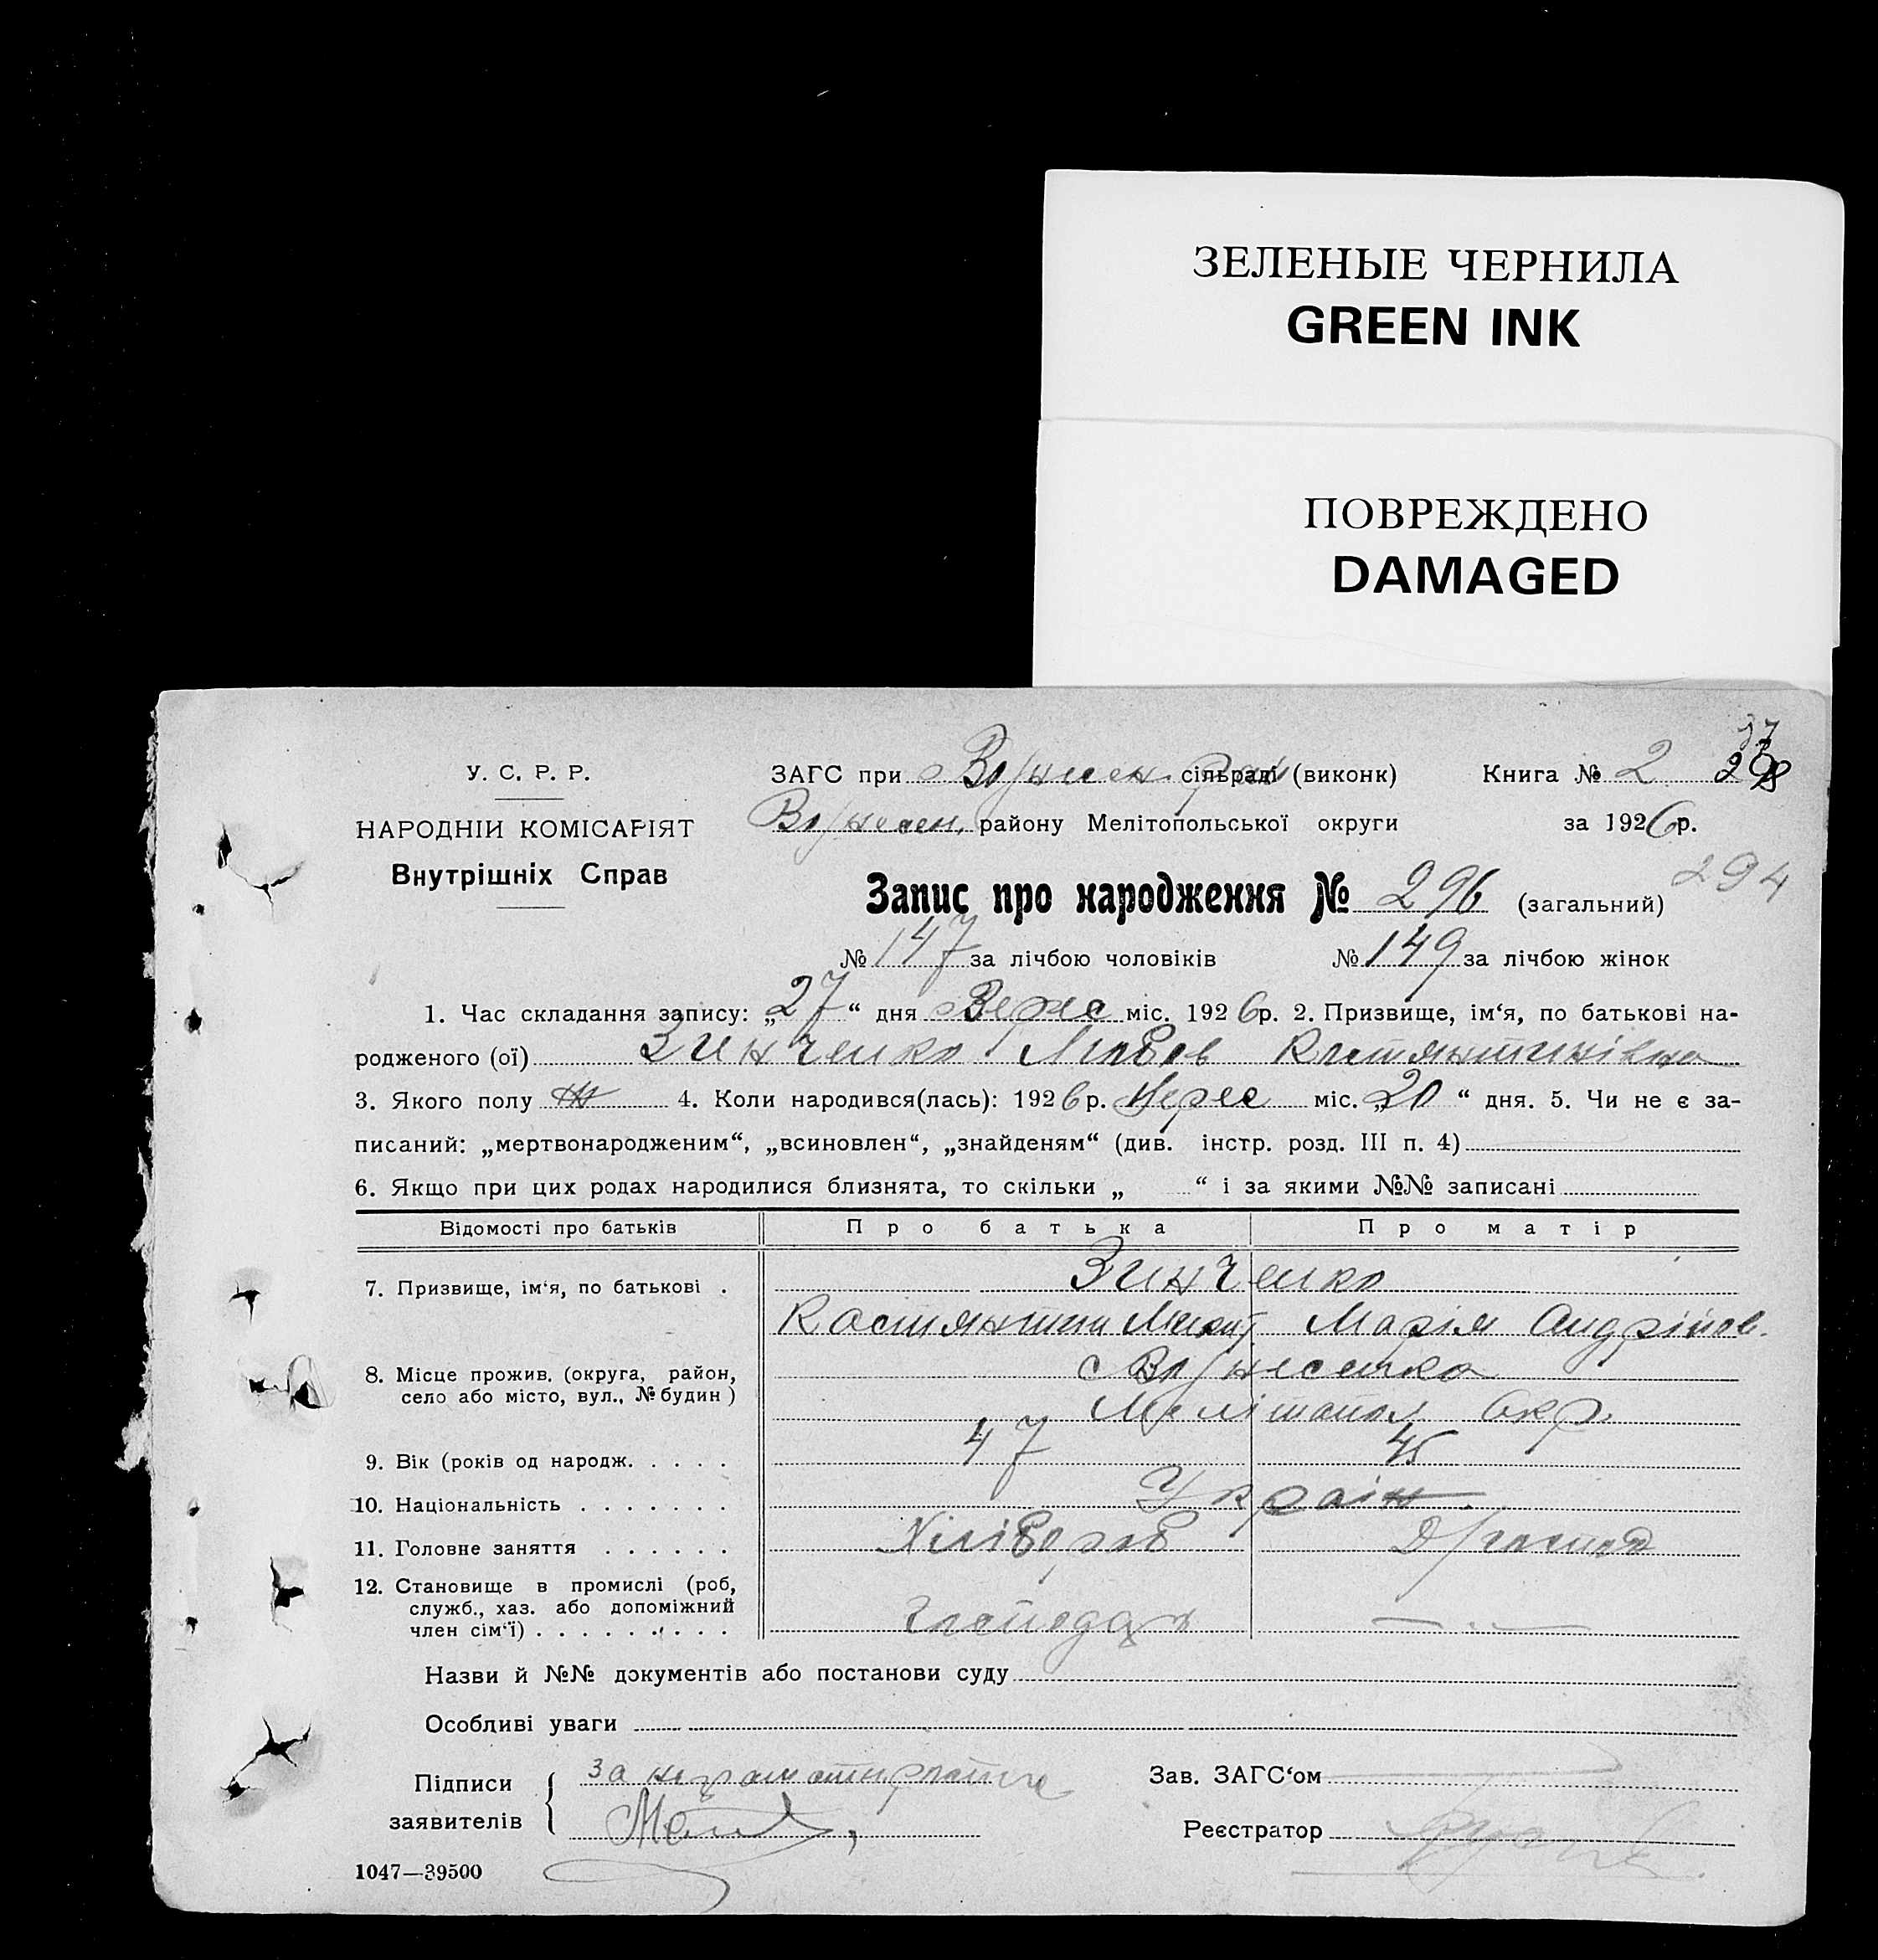 ЗЕЛЕНЫЕ ЧЕРНИЛА
GREEN INK
ПОВРЕЖДЕНО
DAMAGED
У. С. Р. Р.
НАРОДНІЙ КОМІСАРІЯТ
Внутрішніх Справ
ЗАГС при Вознесен. сільраді (виконк) Книга № 2
Вознесен. району Мелітопольської округи за 1926 р.
294
Запис про народження № 296 (загальний)
№ 147 за лічбою чоловіків № 149 за лічбою жінок
1. Час складання запису: „27“ дня Верес міс. 1926 р. 2. Призвище, ім‘я, по батькові на-
родженого (ої) Зинченко Любов Костянтинівна
3. Якого полу ж 4. Коли народився(лась): 1926 р. Верес міс. „20“ дня. 5. Чи не є за-
писаний: „мертвонародженим“, „всиновлен“, „знайденям“ (див. інстр. розд. III п. 4)
6. Якщо при цих родах народилися близнята, то скільки „ “ і за якими №№ записані
Відомості про батьків Про батька Про матір
7. Призвище, ім‘я, по батькові . Зинченко
Костянтин Марія Андріїов.
8. Місце прожив. (округа, район, с Вознесенка
село або місто, вул., № будин ) Мелітопол Окр.
9. Вік (років од народж. . . . . 47 45
10. Національність . . . . . . . Україн.
11. Головне заняття . . . . . . Хліборов
12. Становище в промислі (роб,
служб., хаз. або допоміжний
член сім‘ї) . . . . . . . . . Господар
Назви й №№ документів або постанови суду
Особливі уваги
Підписи за
заявителів
Зав. ЗАГС‘ом
Реєстратор
1047—39500